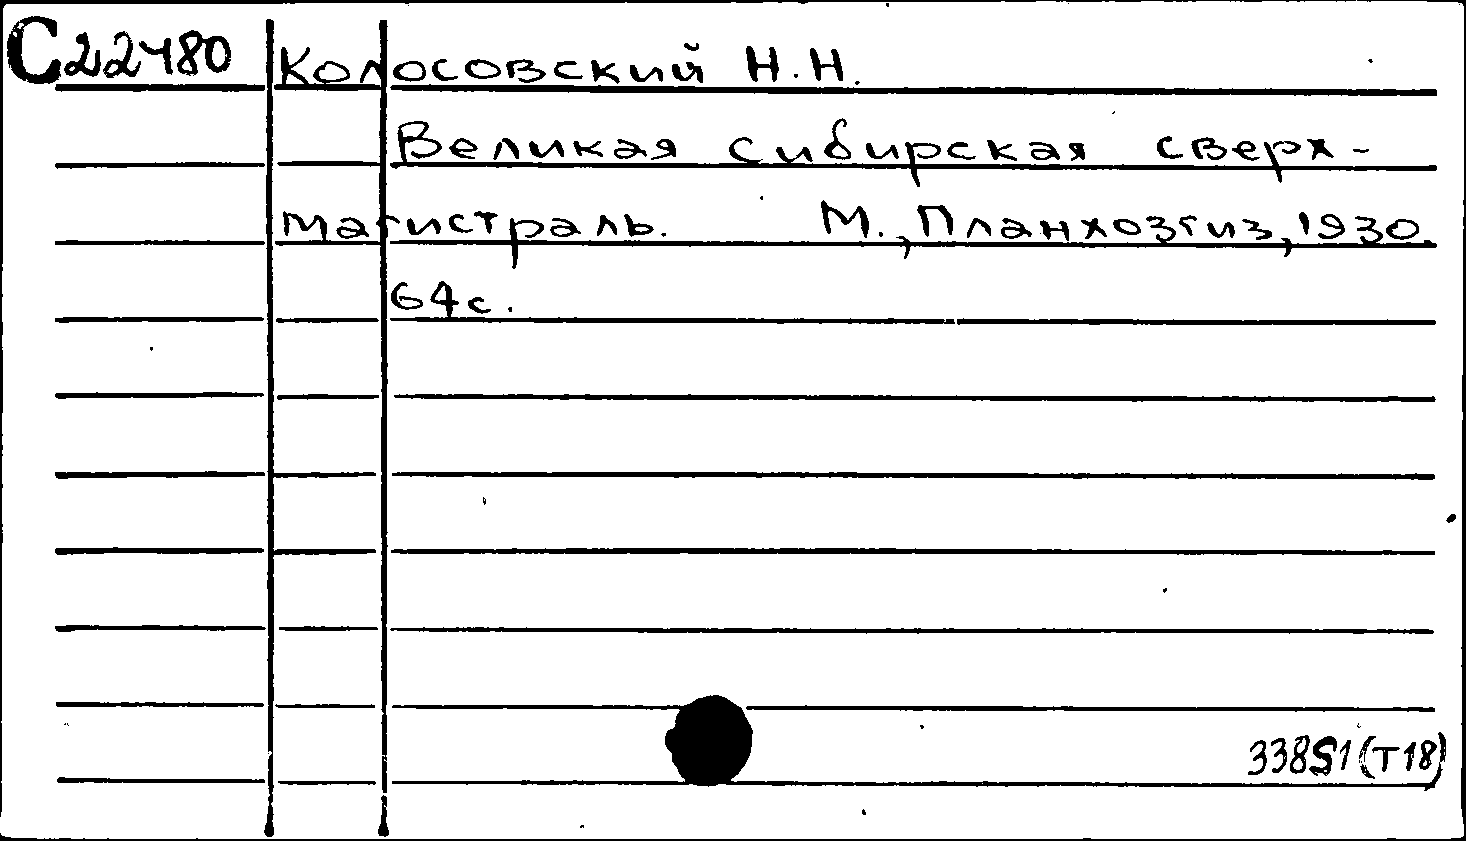 C22480 Колосовский Н.Н.
Великая Сибирская сверх-
магистраль. М., Планхозгиз, 1930.
64 с.
338S1(Т18)